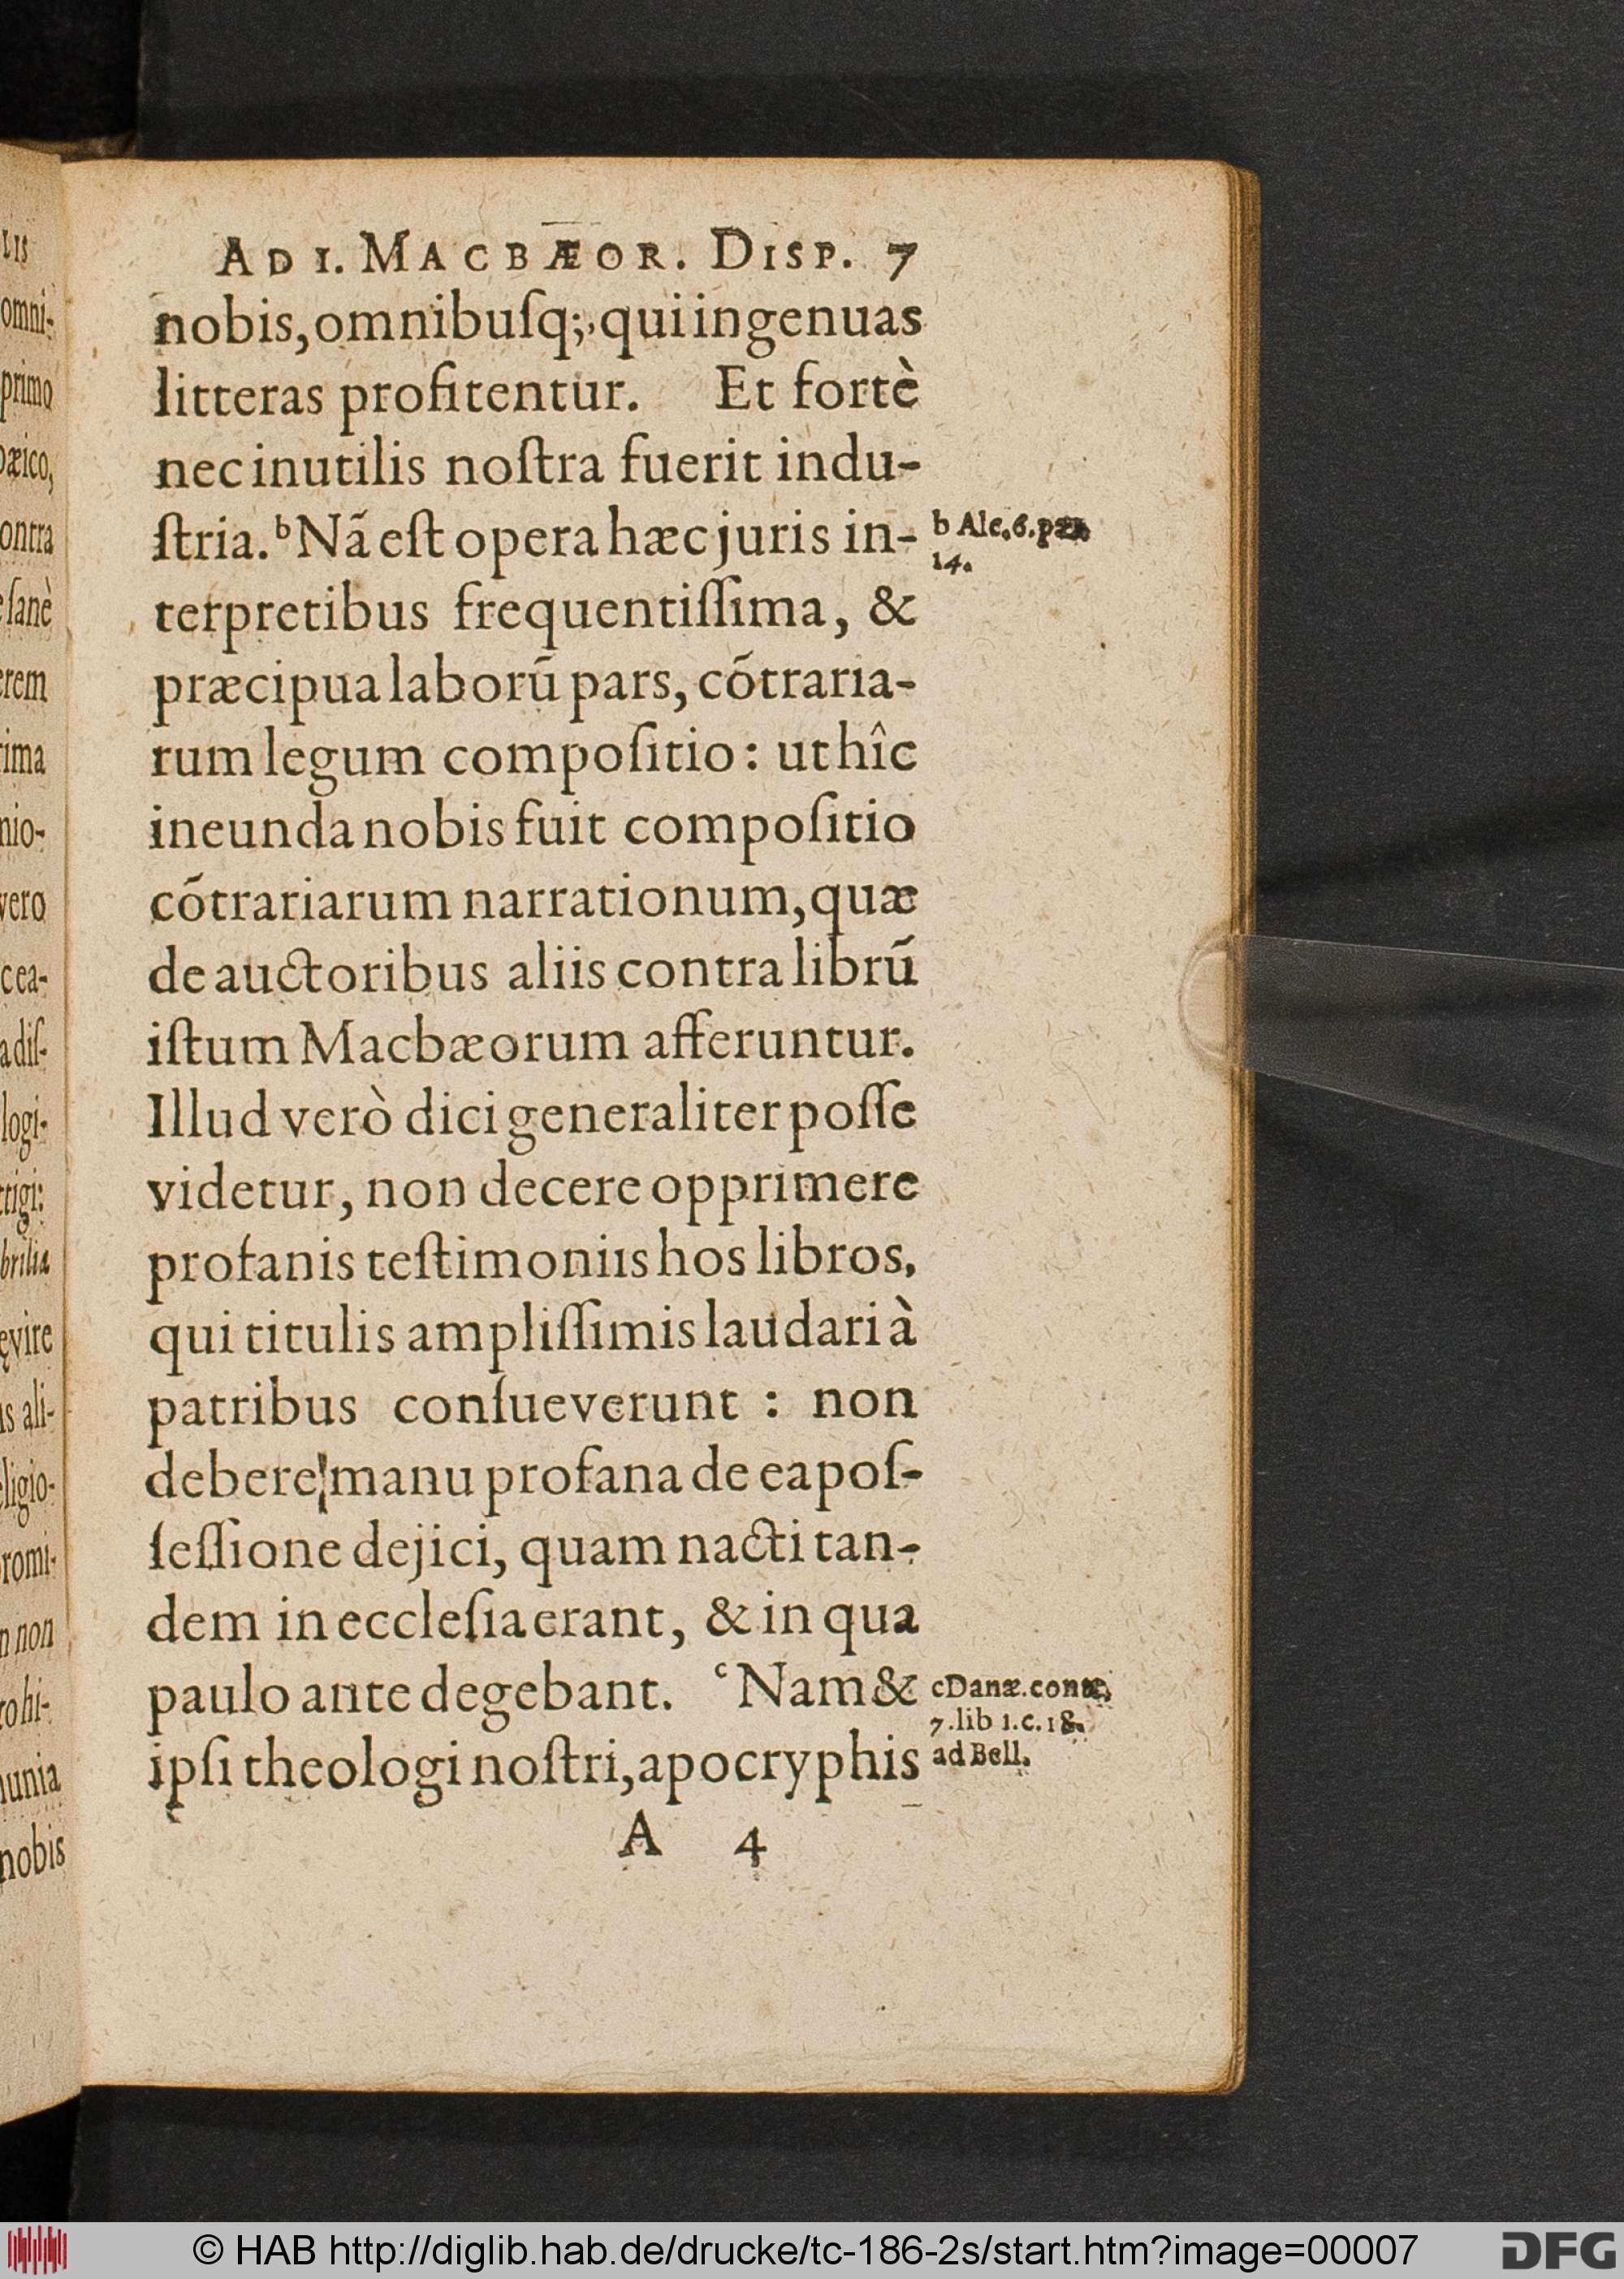 AD I. MACBÆOR. DISP. 7
nobis, omnibuſq;, qui ingenuas
litteras profitentur. Et fortè
nec inutilis noſtra fuerit indu-
ſtria. b Nã eſt opera hæc juris in-
b Alc. 6. par.
14.
terpretibus frequentiſſima, &
præcipua laborũ pars, cõtraria-
rum legum compoſitio: ut hîc
ineunda nobis fuit compoſitio
cõtrariarum narrationum, quæ
de auctoribus aliis contra librũ
iſtum Macbæorum afferuntur.
Illud verò dici generaliter poſſe
videtur, non decere opprimere
profanis teſtimoniis hos libros,
qui titulis ampliſſimis laudari à
patribus conſueverunt : non
debere manu profana de ea poſ-
ſeſſione dejici, quam nacti tan-
dem in eccleſia erant, & in qua
paulo ante degebant. c Nam &
c Danæ. contr.
7. lib 1. c. 18.
ad Bell.
ipſi theologi noſtri, apocryphis
A 4
lis
omni-
primo
bæico,
ontra
ſanè
erem
rima
nio-
vero
cea-
adiſ-
logi-
ttigi:
brilia
evire
is ali-
eligio-
romi-
non
ro hi-
nunia
nobis
© HAB http://diglib.hab.de/drucke/tc-186-2s/start.htm?image=00007
DFG